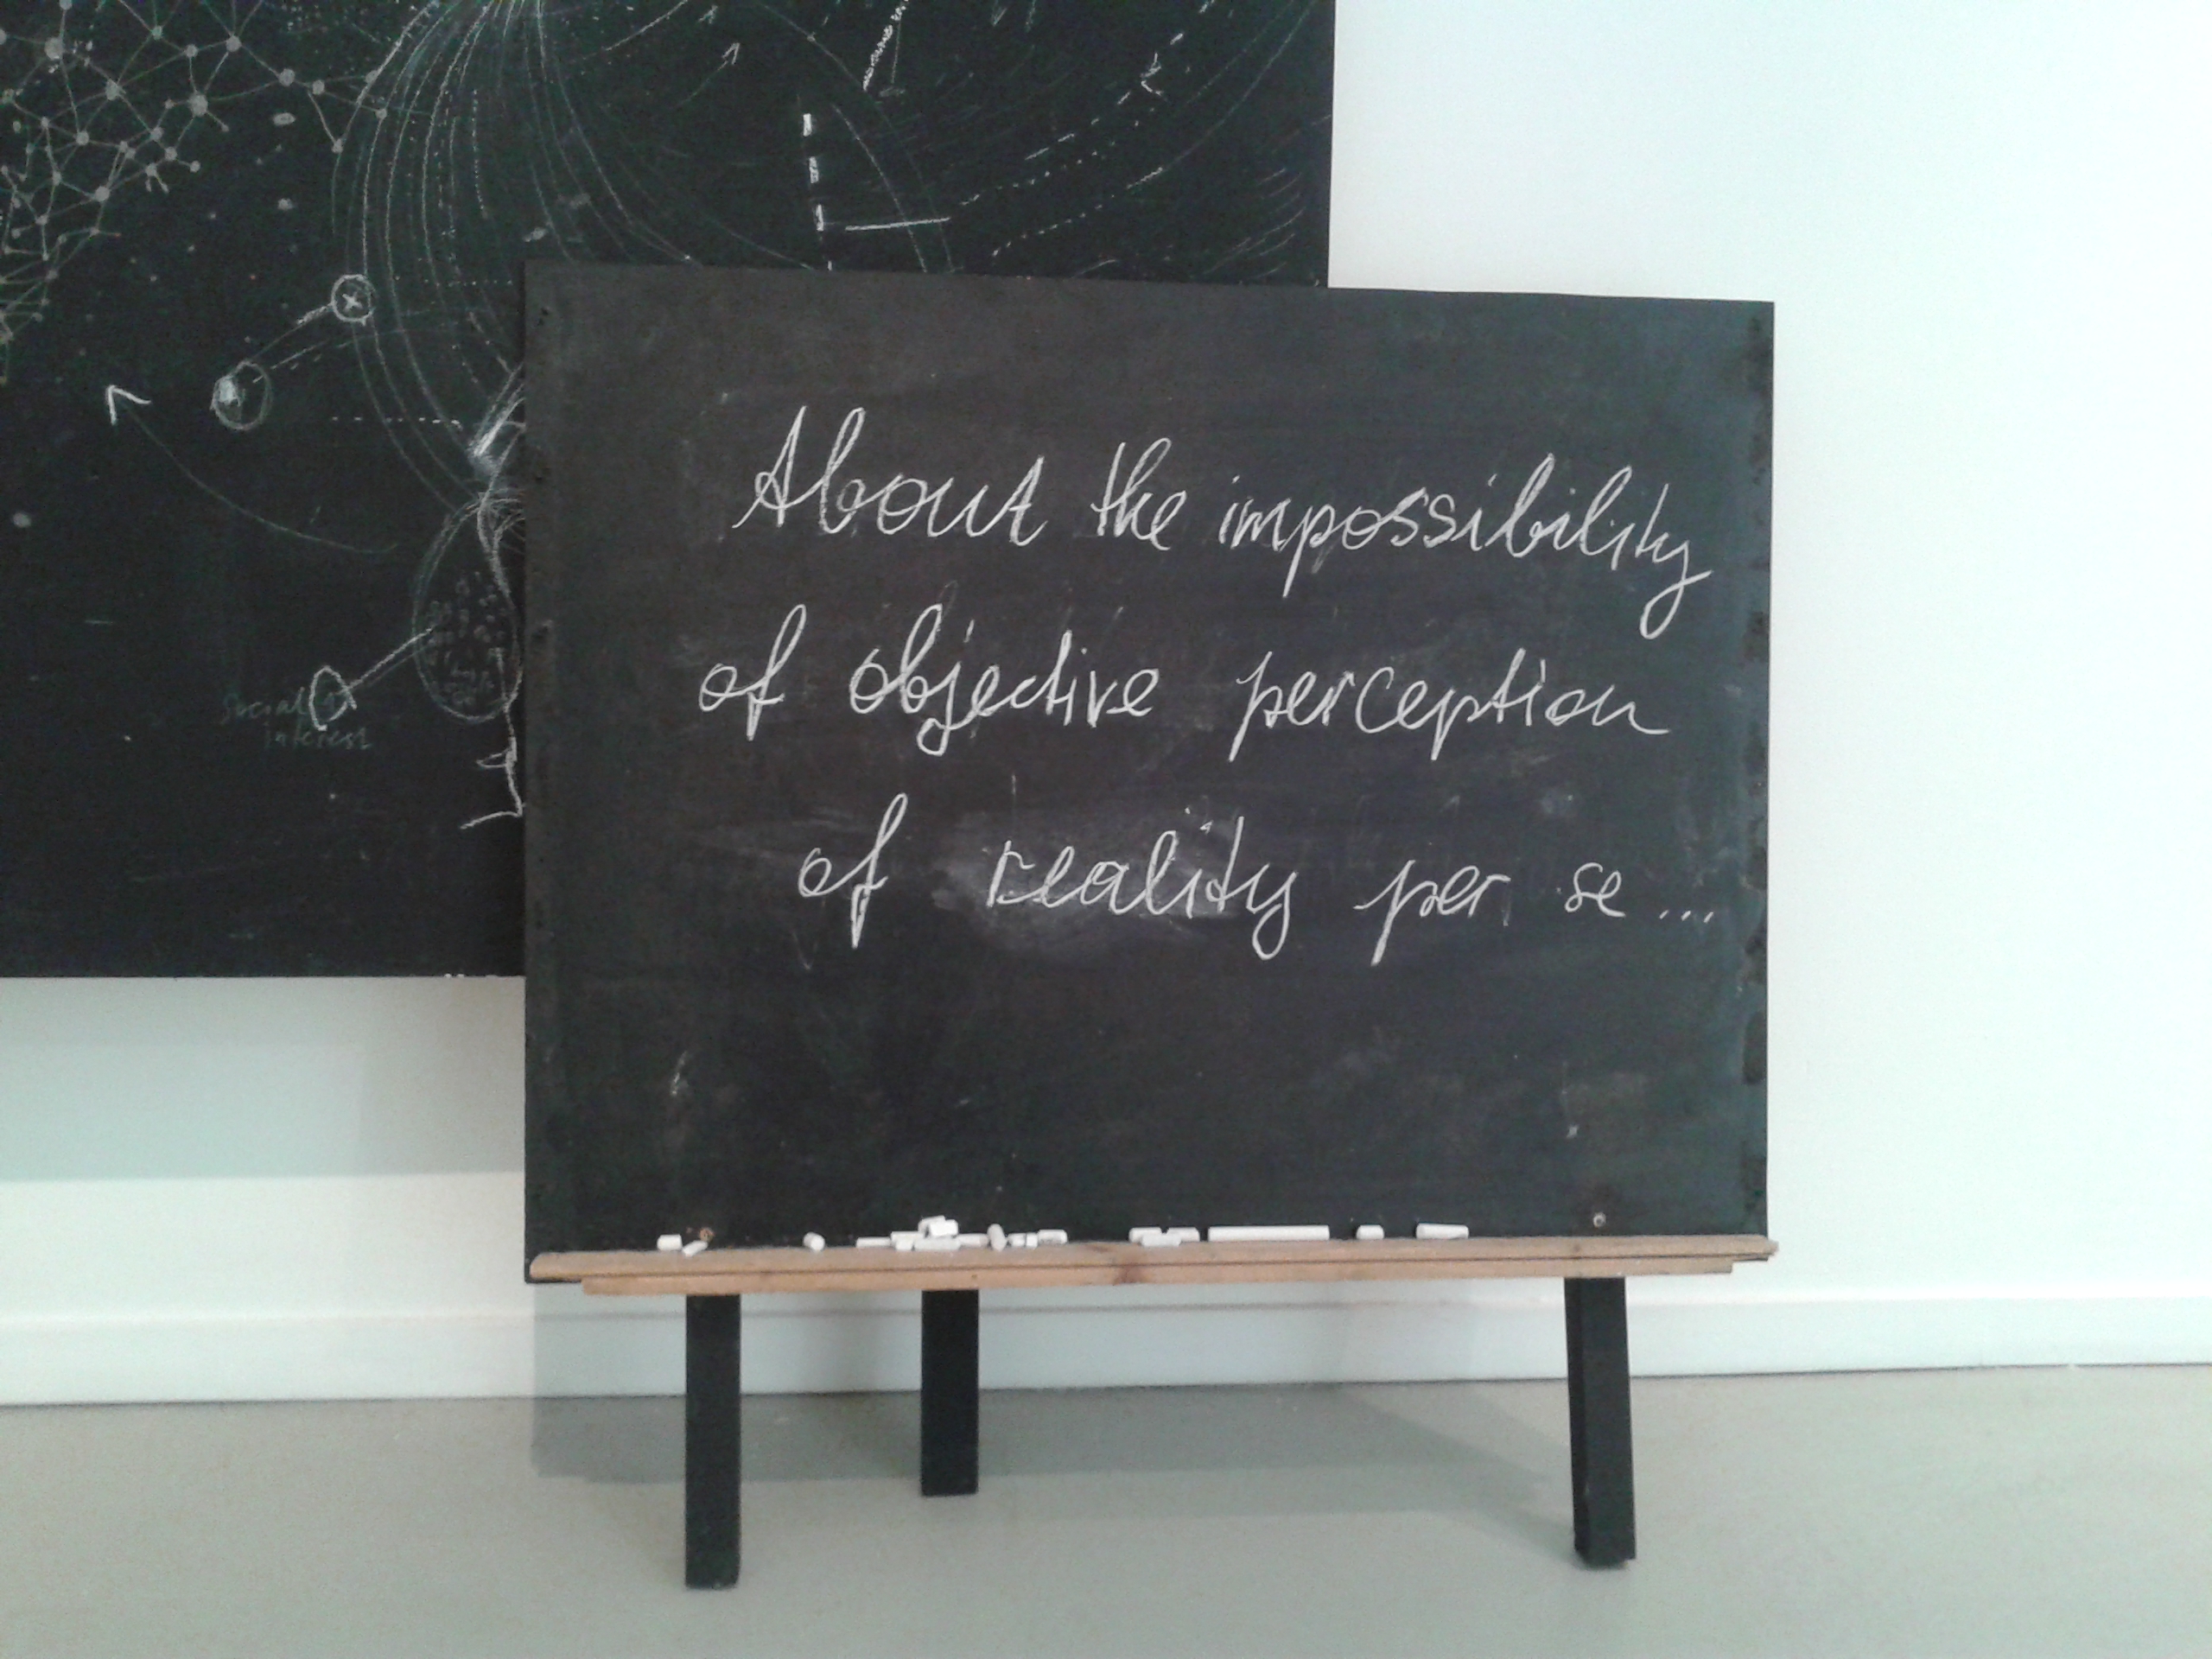 About the impossibility
of objective perception
of reality per se...
Social
interest